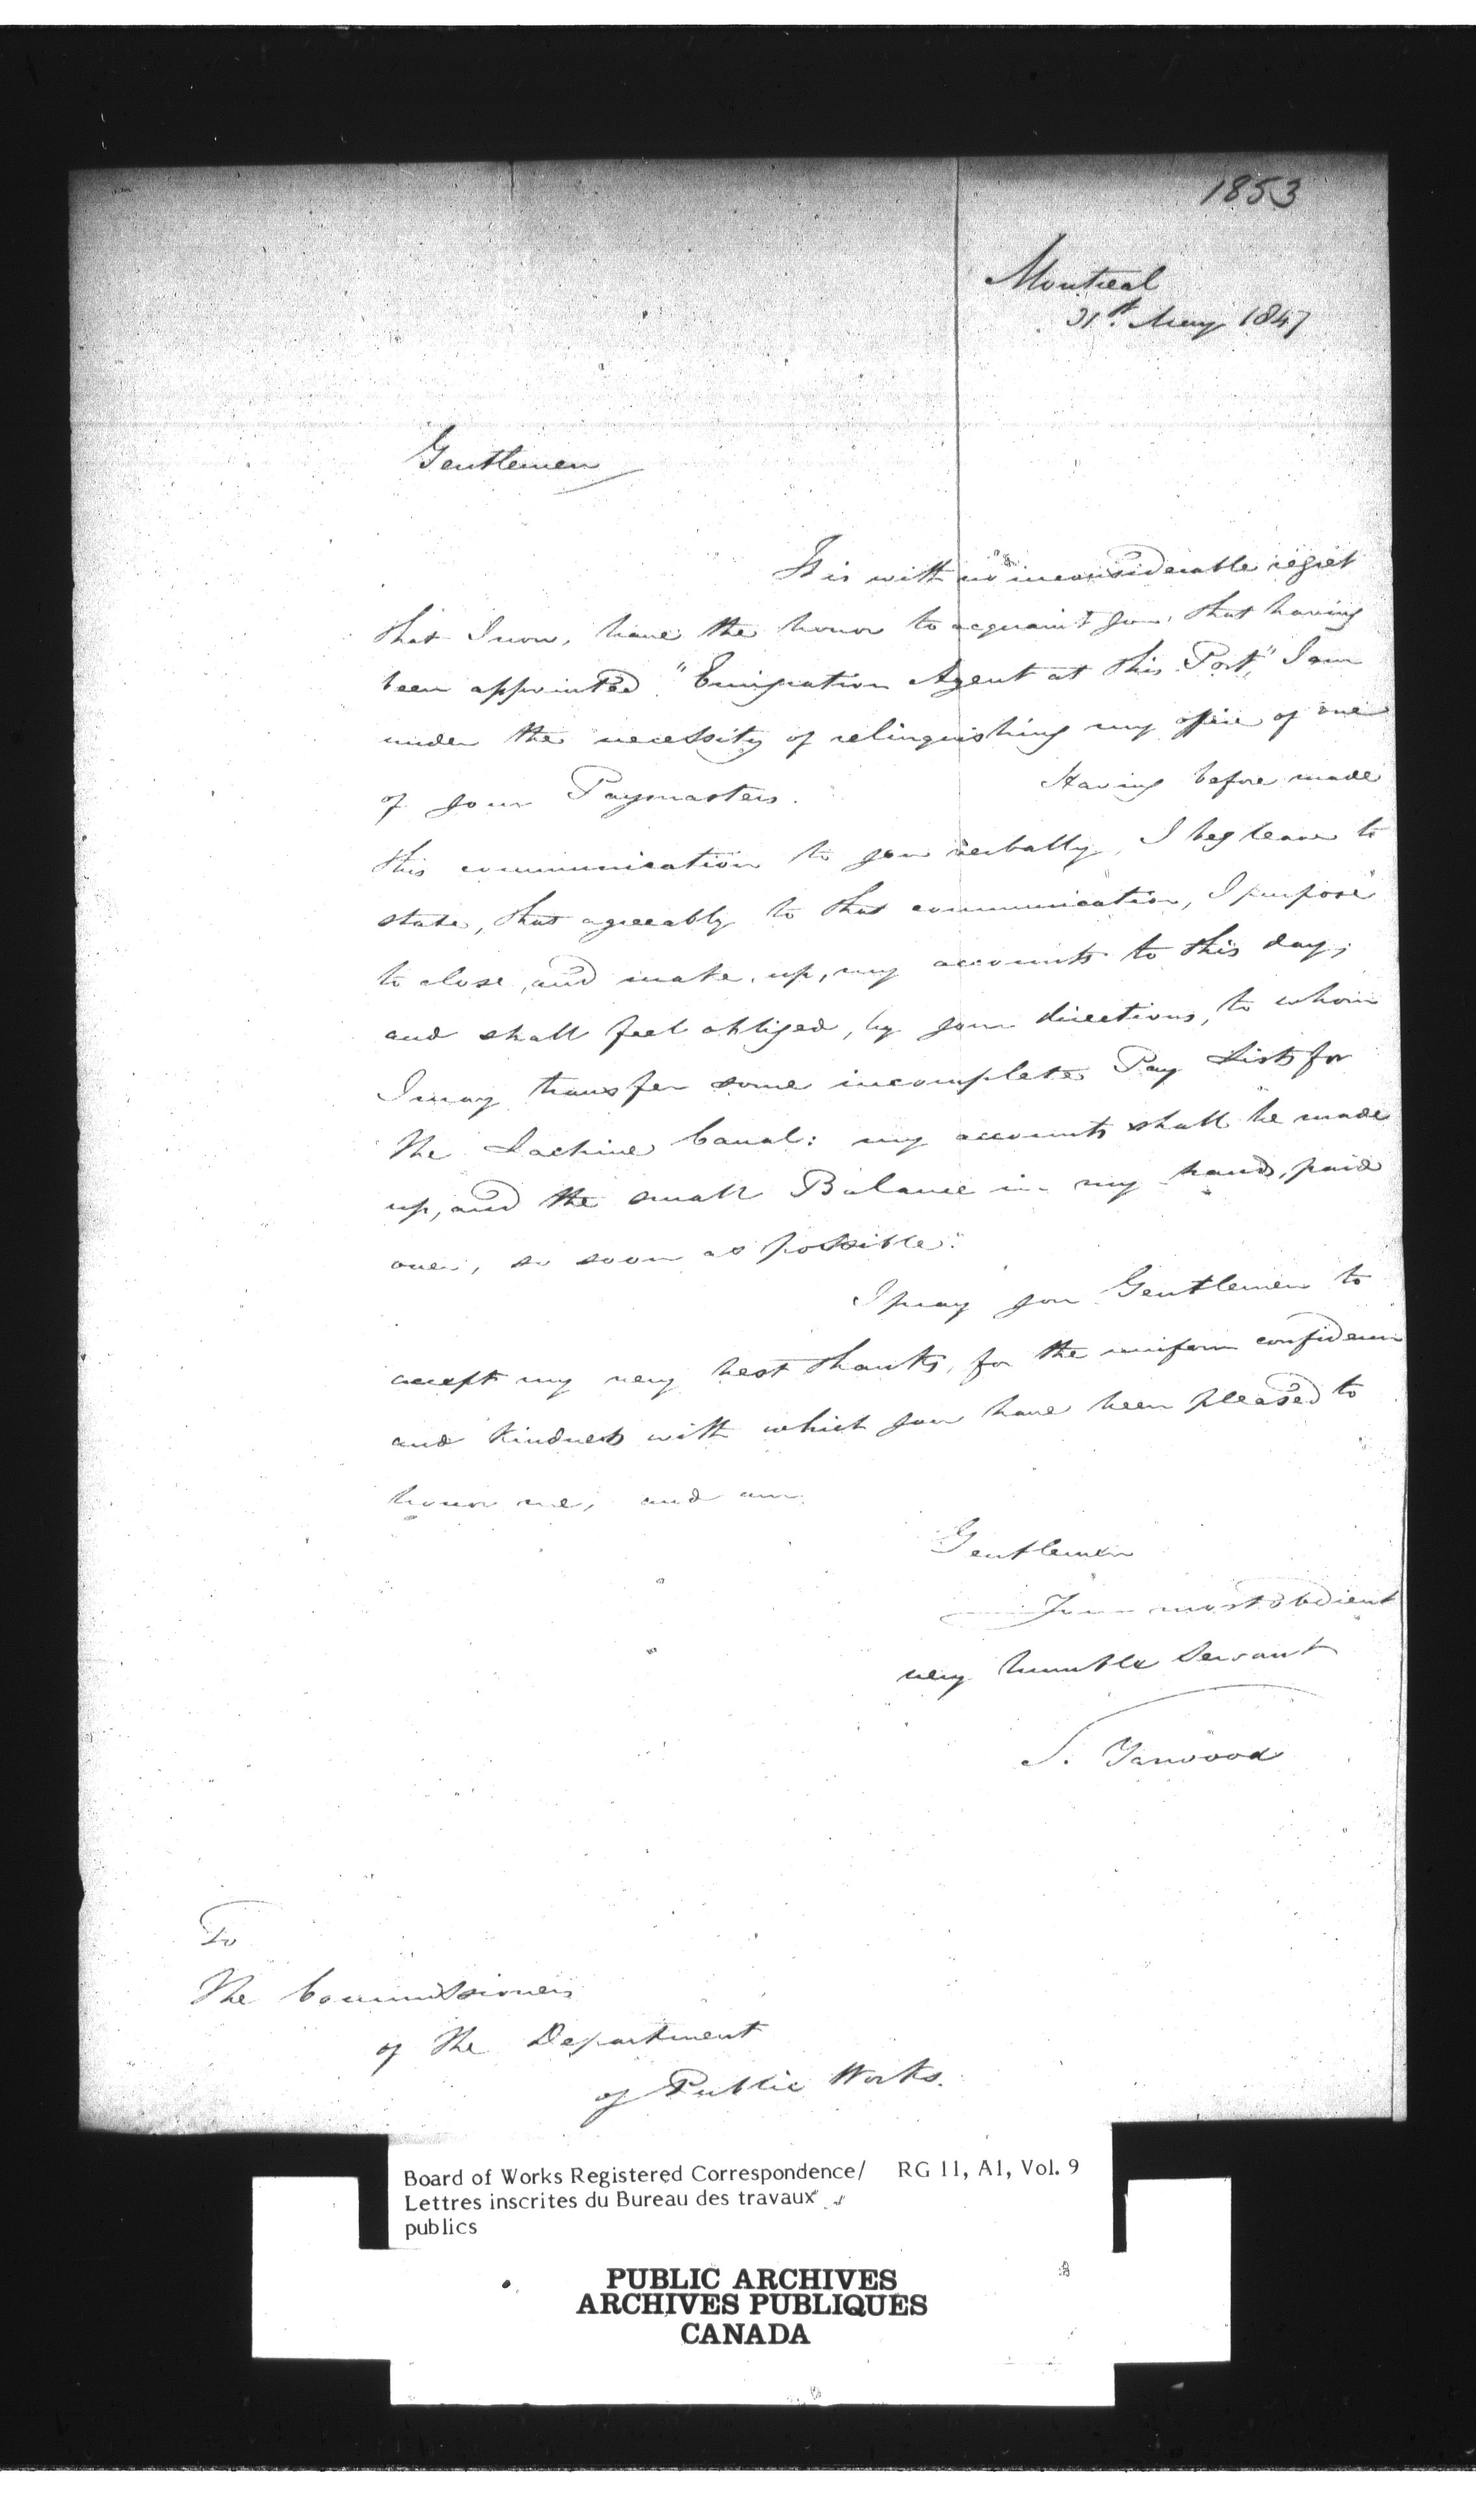 1853
Montreal
31st. May 1847
Gentlemen
It is with no inconsiderable regret
that I now, have the honor to acquaint you, that having
been appointed "Emigration Agent at this Port," I am
under the necessity of relinquishing my office of one
of your Paymasters. Having before made
this communication to you verbally, I beg leave to
state, that agreeably to that communication, I purpose
to close, and make up, my accounts to this day;
and shall feel obliged, by your directions, to whom
I may transfer some incomplete Pay Lists for
the Lachine Canal: my accounts shall be made
up, and the small Balance in my hands, paid
over, so soon as possible.
I pray you Gentlemen to
accept my very best thanks, for the uniform confidence
and kindness with which you have been pleased to
honor me, and am
Gentlemen
Your most obedient
very humble Servant
S. Yarwood
To
The Commissioners
of the Department
of Public Works.
Board of Works Registered Correspondence/ RG 11, A1, Vol. 9
Lettres inscrites du Bureau des travaux
publics
PUBLIC ARCHIVES
ARCHIVES PUBLIQUES
CANADA